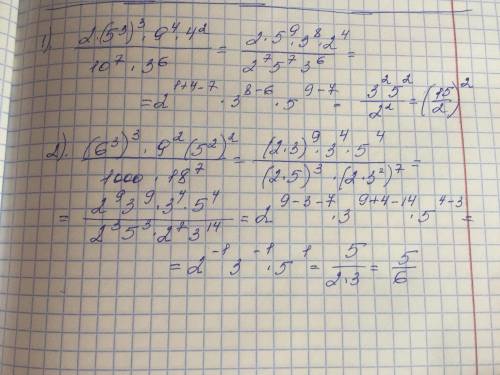 1). (2·(5³)³·9⁴·4²)/(10⁷·3⁶) = (2·5⁹·3⁸·2⁴)/(2⁷5⁷3⁶) =
= 2^(1+4-7)·3^(8-6)·5^(9-7) = (3²5²)/2² = (15/2)²
2). ((6³)³·9²(5²)²)/(1000·18⁷) = ((2·3)⁹·3⁴·5⁴)/((2·5)³·(2·3²)⁷) =
= (2⁹3⁹·3⁴·5⁴)/(2³5³·2⁷3¹⁴) = 2^(9-3-7)·3^(9+4-14)·5^(4-3) =
= 2⁻¹3⁻¹·5¹ = 5/(2·3) = 5/6